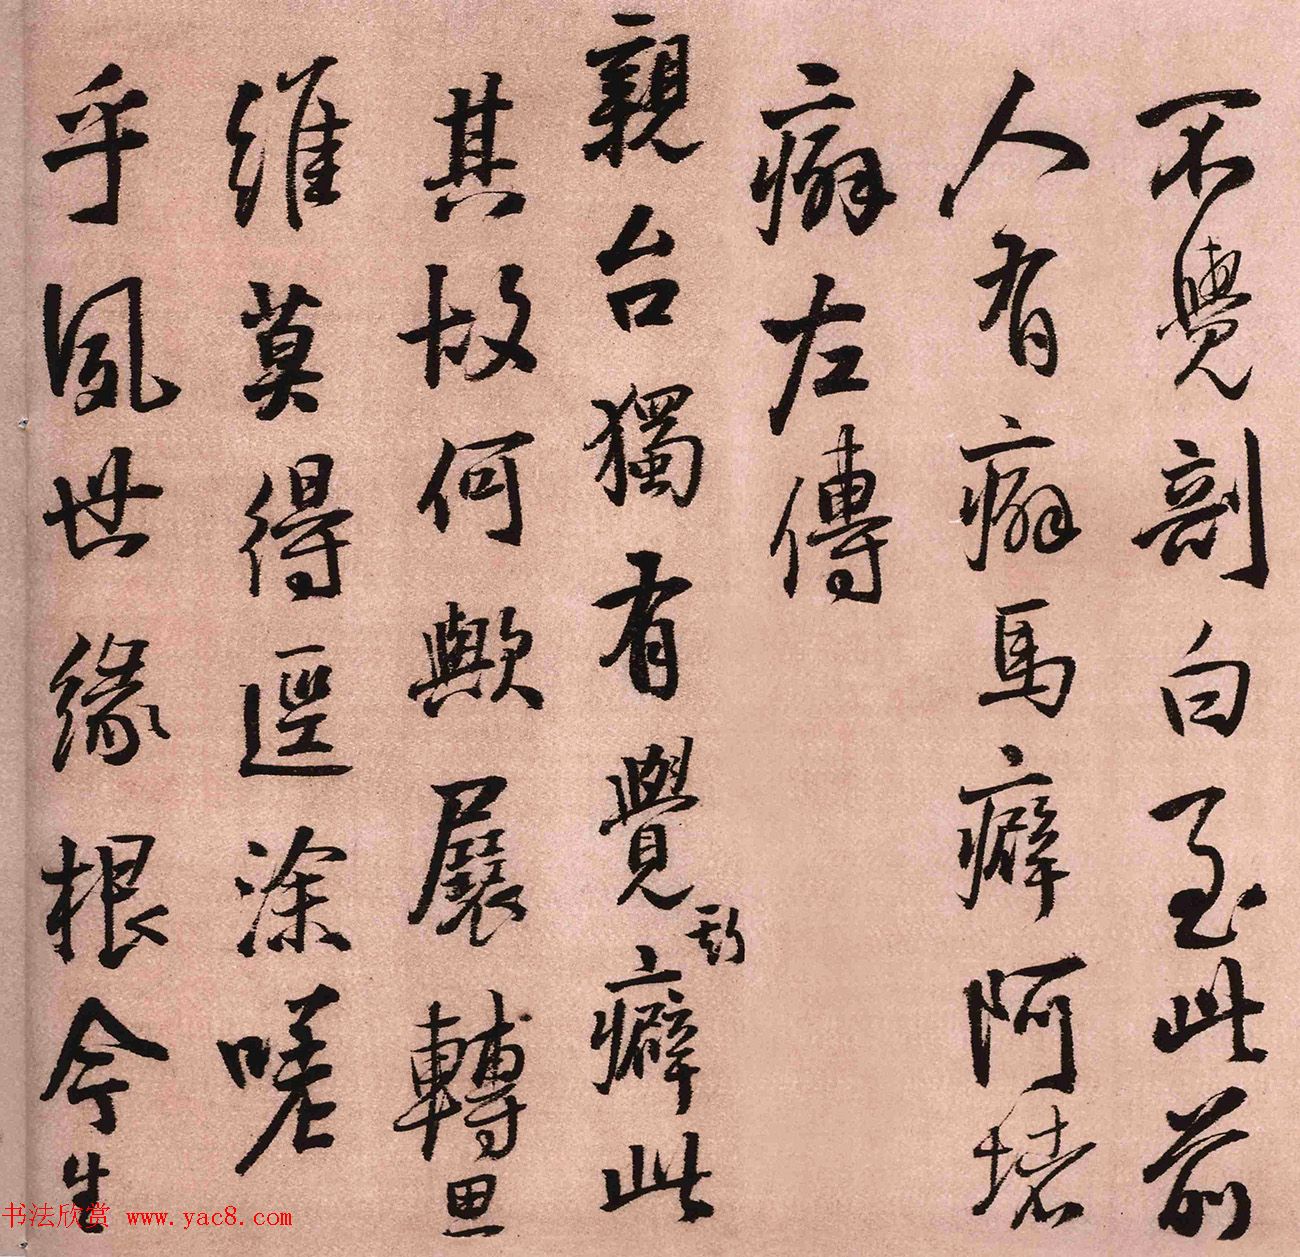 不覺剖白至此前
人有癖馬癖阿堵
癖左傳
親台獨有覺斯癖此
其故何歟展轉思
維莫得逕涂嗟
乎夙世緣根今生
书法欣赏 www.yac8.com